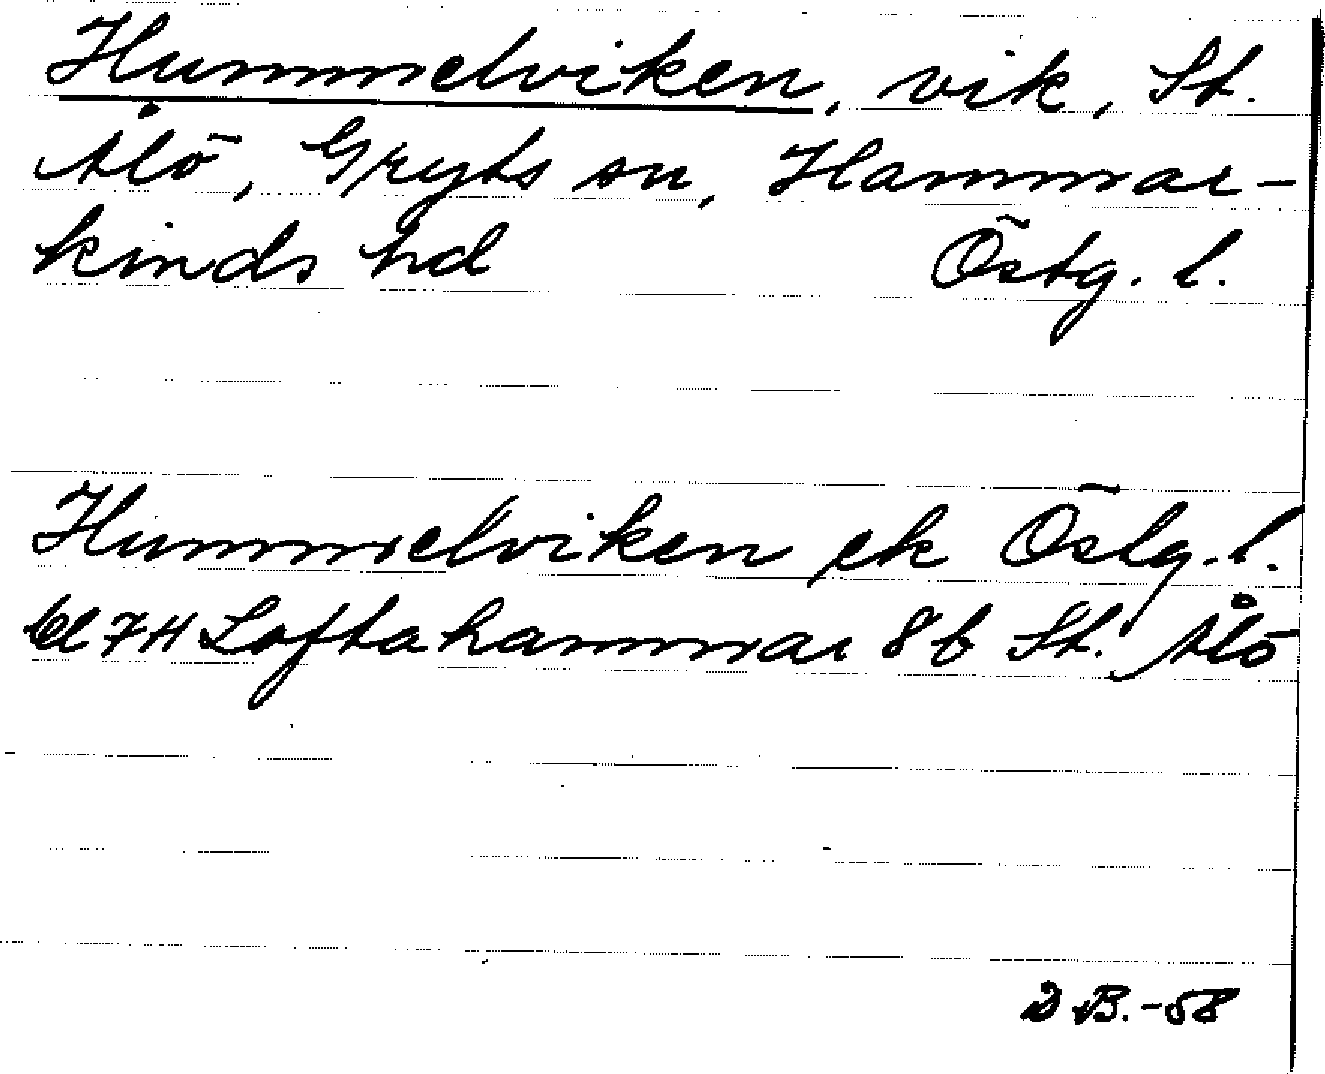 Hummelviken, vik, St.
Ålö, Gryts sn, Hammar-
kinds hd Östg. l.
Hummelviken ek Östg. l.
bl 7H Loftahammar 8b St. Ålö
D B. -58